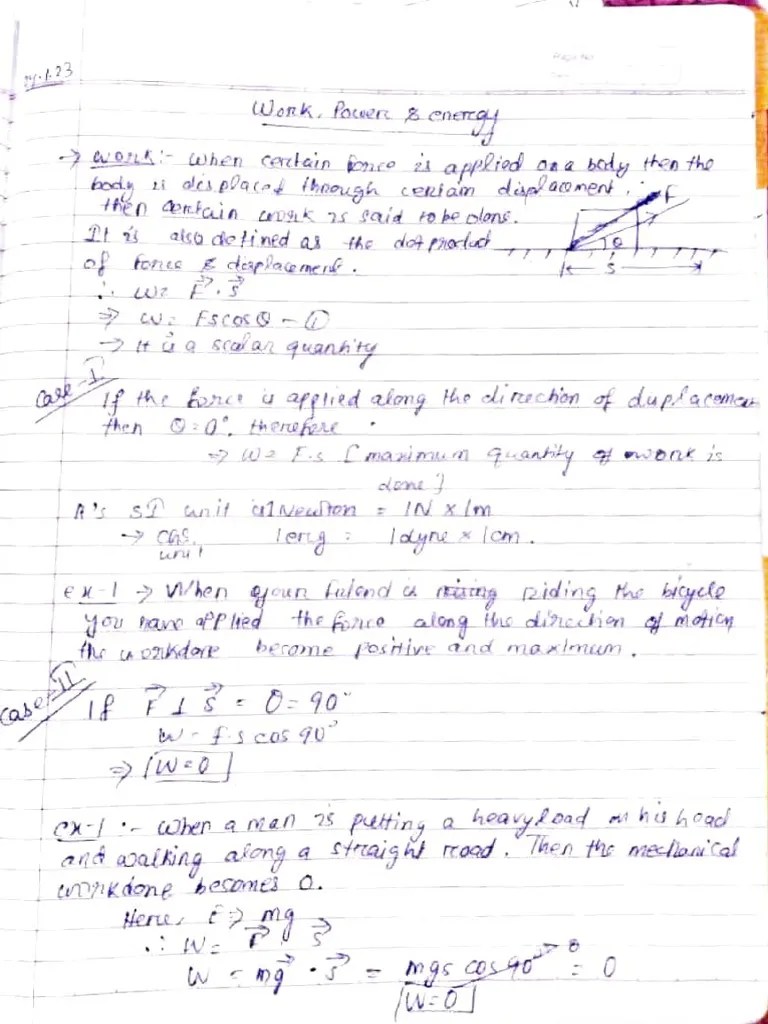 24.1.23
Page No
Work, Power & energy
→ work:- when certain force is applied on a body then the
body is displaced through certain displacement.
then certain work is said to be done.
It is also defined as the dot product
of force & displacement.
F
θ
S
∴ W = F⃗ . S⃗
⇒ W = FS cos θ - ①
→ It is a scalar quantity
Case-I
If the force is applied along the direction of displacement
then θ = 0°. therefore
⇒ W = F.s [maximum quantity of work is
done]
It's SI unit is 1 Newton = 1N × 1m
→ CGS unit 1 erg = 1 dyne × 1 cm.
ex-1 → When your friend is riding the bicycle
you have applied the force along the direction of motion
the workdone become positive and maximum.
Case-II
If F⃗ ⊥ S⃗ = θ = 90°
W = f.s cos 90°
⇒ W = 0
ex-1 :- when a man is putting a heavy load on his head
and walking along a straight road. Then the mechanical
workdone becomes 0.
Here, F ⇒ mg
∴ W = F⃗ . S⃗
W = mg⃗ . S⃗ = mgs cos 90° → 0 = 0
W = 0